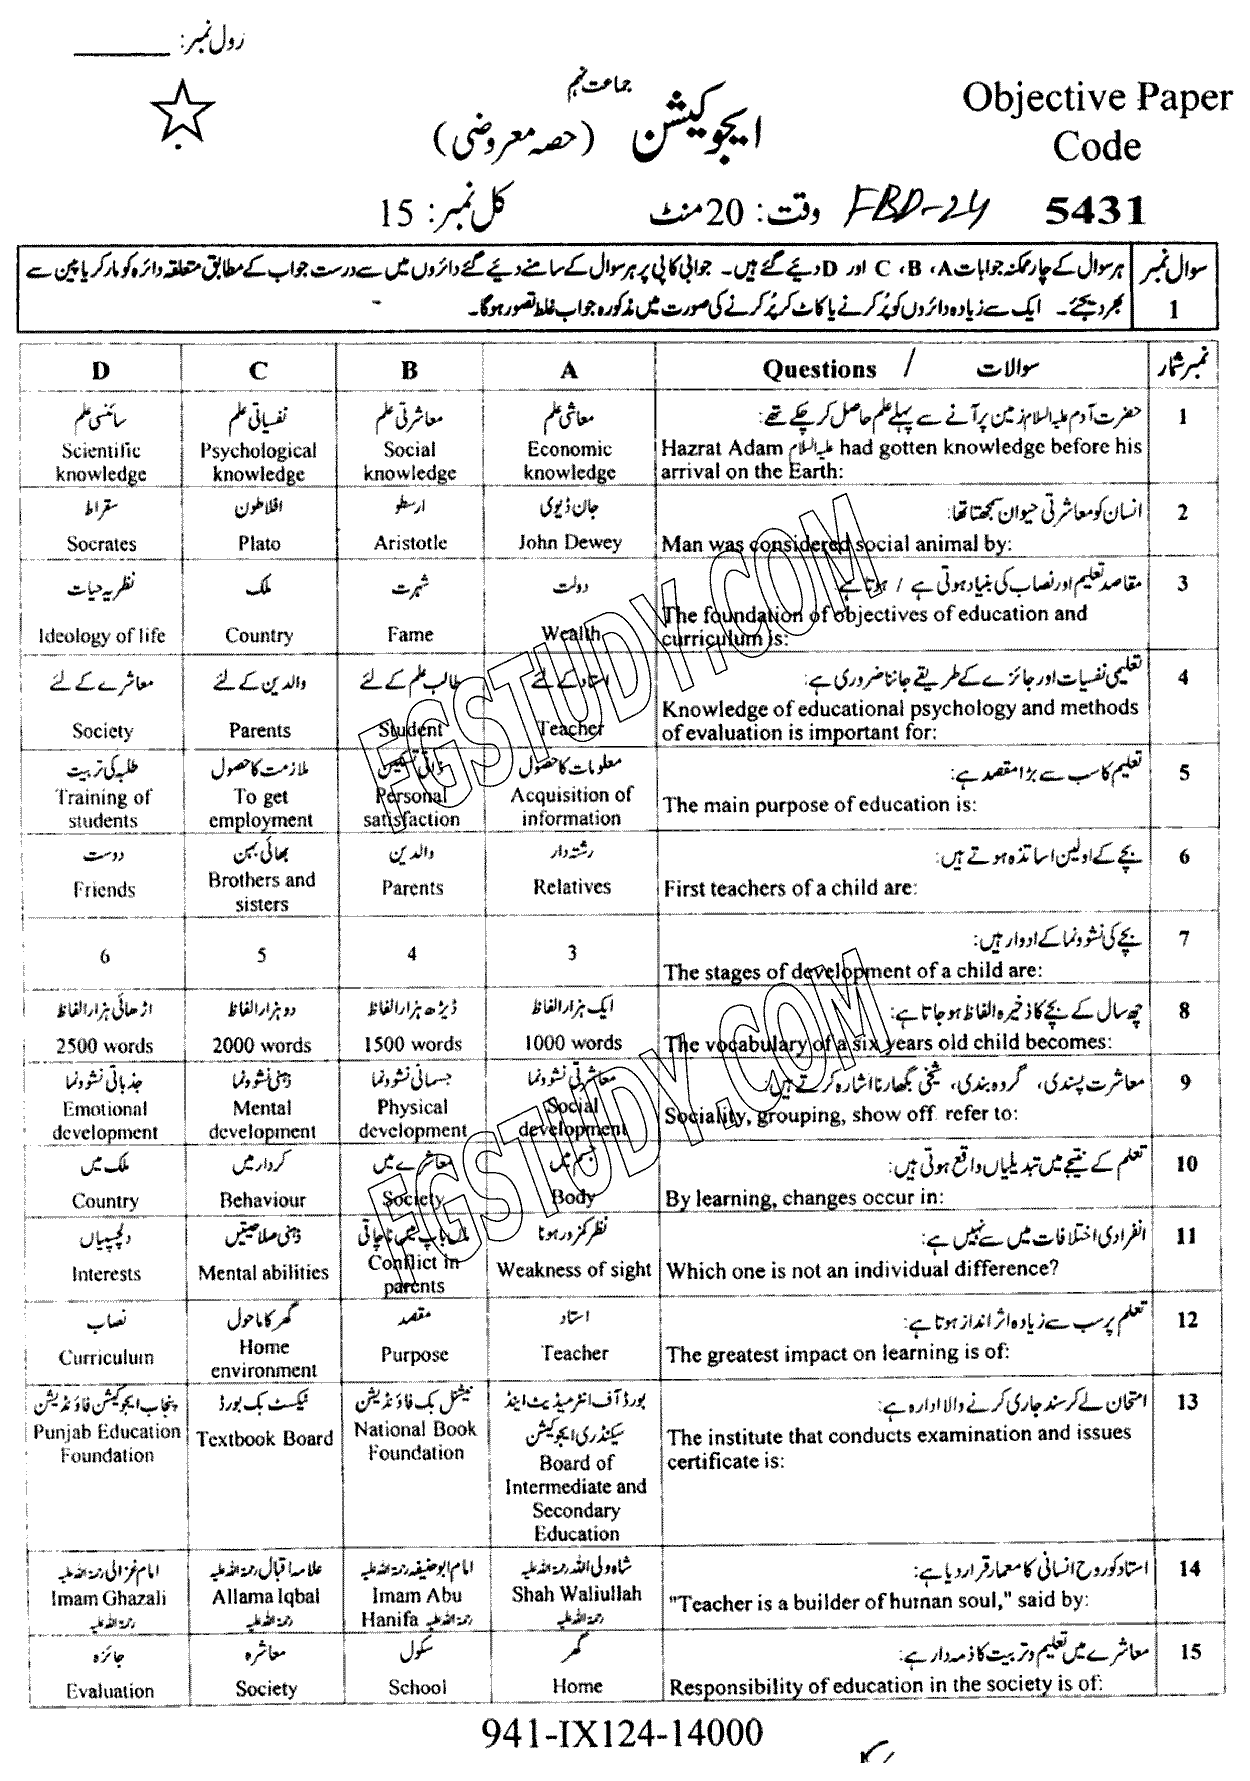 رول نمبر: ________
جماعت نہم
Objective Paper
Code
5431
ایجوکیشن (حصہ معروضی)
FBD-24
وقت: 20 منٹ
کل نمبر: 15
سوال نمبر 1
ہر سوال کے چار ممکنہ جوابات A ، B ، C اور D دیئے گئے ہیں۔ جوابی کاپی پر ہر سوال کے سامنے دیئے گئے دائروں میں سے درست جواب کے مطابق متعلقہ دائرہ کو مارکر یا پین سے
بھر دیجئے۔ ایک سے زیادہ دائروں کو پُر کرنے یا کاٹ کر پُر کرنے کی صورت میں مذکورہ جواب غلط تصور ہوگا۔
نمبر شمار
سوالات / Questions
A
B
C
D
1
حضرت آدم علیہ السلام زمین پر آنے سے پہلے علم حاصل کر چکے تھے:
Hazrat Adam علیہ السلام had gotten knowledge before his
arrival on the Earth:
معاشی علم
Economic
knowledge
معاشرتی علم
Social
knowledge
نفسیاتی علم
Psychological
knowledge
سائنسی علم
Scientific
knowledge
2
انسان کو معاشرتی حیوان سمجھتا تھا:
Man was considered social animal by:
جان ڈیوی
John Dewey
ارسطو
Aristotle
افلاطون
Plato
سقراط
Socrates
3
مقاصد تعلیم اور نصاب کی بنیاد ہوتی ہے / ہوتا ہے:
The foundation of objectives of education and
curriculum is:
دولت
Wealth
شہرت
Fame
ملک
Country
نظریہ حیات
Ideology of life
4
تعلیمی نفسیات اور جائزے کے طریقے جاننا ضروری ہے:
Knowledge of educational psychology and methods
of evaluation is important for:
استاد کے لئے
Teacher
طالب علم کے لئے
Student
والدین کے لئے
Parents
معاشرے کے لئے
Society
5
تعلیم کا سب سے بڑا مقصد ہے:
The main purpose of education is:
معلومات کا حصول
Acquisition of
information
ذاتی تسکین
Personal
satisfaction
ملازمت کا حصول
To get
employment
طلبہ کی تربیت
Training of
students
6
بچے کے اولین اساتذہ ہوتے ہیں:
First teachers of a child are:
رشتہ دار
Relatives
والدین
Parents
بھائی بہن
Brothers and
sisters
دوست
Friends
7
بچے کی نشوونما کے ادوار ہیں:
The stages of development of a child are:
3
4
5
6
8
چھ سال کے بچے کا ذخیرہ الفاظ ہو جاتا ہے:
The vocabulary of a six years old child becomes:
ایک ہزار الفاظ
1000 words
ڈیڑھ ہزار الفاظ
1500 words
دو ہزار الفاظ
2000 words
اڑھائی ہزار الفاظ
2500 words
9
معاشرت پسندی، گروہ بندی، شیخی بگھارنا اشارہ کرتے ہیں:
Sociality, grouping, show off refer to:
معاشرتی نشوونما
Social
development
جسمانی نشوونما
Physical
development
ذہنی نشوونما
Mental
development
جذباتی نشوونما
Emotional
development
10
تعلم کے نتیجے میں تبدیلیاں واقع ہوتی ہیں:
By learning, changes occur in:
جسم میں
Body
معاشرے میں
Society
کردار میں
Behaviour
ملک میں
Country
11
انفرادی اختلافات میں سے نہیں ہے:
Which one is not an individual difference?
نظر کمزور ہونا
Weakness of sight
ماں باپ میں ناچاتی
Conflict in
parents
ذہنی صلاحیتیں
Mental abilities
دلچسپیاں
Interests
12
تعلم پر سب سے زیادہ اثر انداز ہوتا ہے:
The greatest impact on learning is of:
استاد
Teacher
مقصد
Purpose
گھر کا ماحول
Home
environment
نصاب
Curriculum
13
امتحان لے کر سند جاری کرنے والا ادارہ ہے:
The institute that conducts examination and issues
certificate is:
بورڈ آف انٹرمیڈیٹ اینڈ
سیکنڈری ایجوکیشن
Board of
Intermediate and
Secondary
Education
نیشنل بک فاؤنڈیشن
National Book
Foundation
ٹیکسٹ بک بورڈ
Textbook Board
پنجاب ایجوکیشن فاؤنڈیشن
Punjab Education
Foundation
14
استاد کو روح انسانی کا معمار قرار دیا ہے:
"Teacher is a builder of human soul," said by:
شاہ ولی اللہ رحمۃ اللہ علیہ
Shah Waliullah
رحمۃ اللہ علیہ
امام ابو حنیفہ رحمۃ اللہ علیہ
Imam Abu
Hanifa رحمۃ اللہ علیہ
علامہ اقبال رحمۃ اللہ علیہ
Allama Iqbal
رحمۃ اللہ علیہ
امام غزالی رحمۃ اللہ علیہ
Imam Ghazali
رحمۃ اللہ علیہ
15
معاشرے میں تعلیم و تربیت کا ذمہ دار ہے:
Responsibility of education in the society is of:
گھر
Home
سکول
School
معاشرہ
Society
جائزہ
Evaluation
941-IX124-14000
FGSTUDY.COM
FGSTUDY.COM